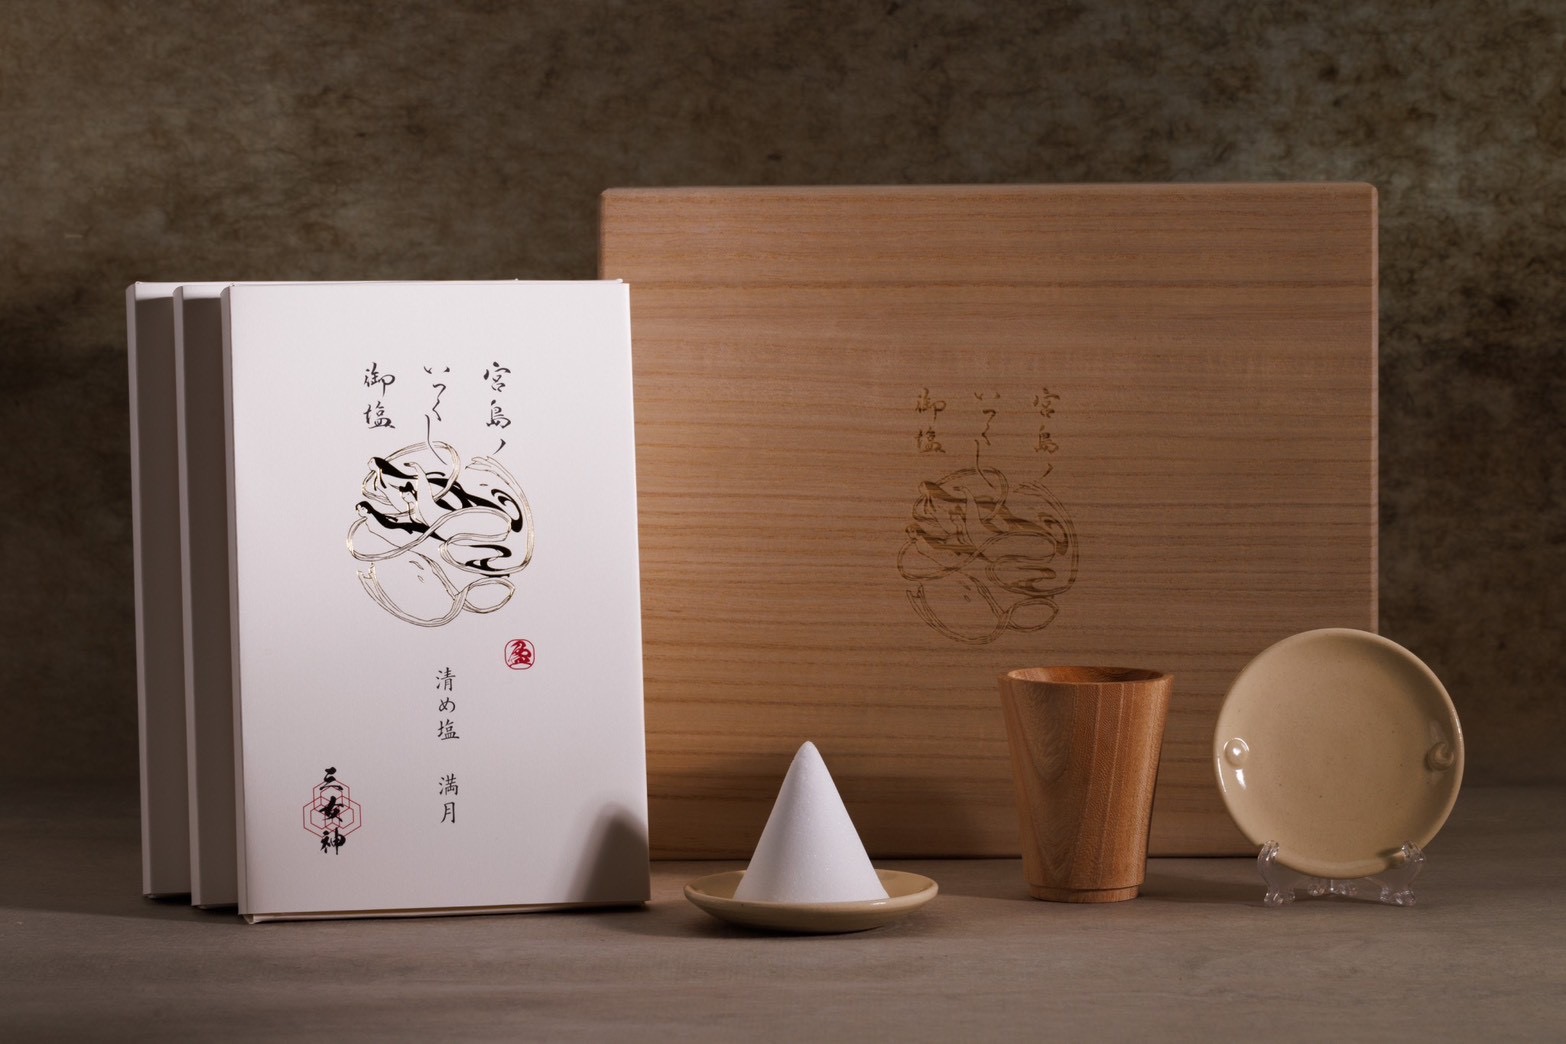 宮島ノ
いつくし
御塩
盈
清め塩 満月
三女神
宮島ノ
いつくし
御塩